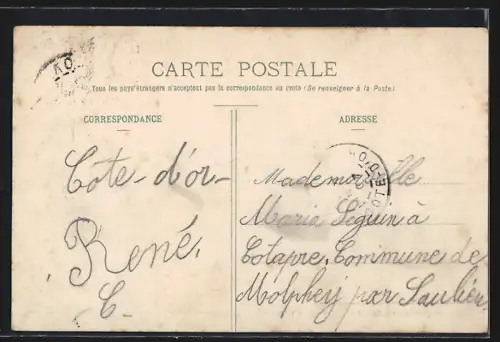 CARTE POSTALE
Tous les pays étrangers n'acceptent pas la correspondance au recto (Se renseigner à la Poste)
CORRESPONDANCE
ADRESSE
Cote-d'or-
René,
C-
Mademoiselle
Maria Seguin à
Cotapre, Commune de
Molphey par Saulieu